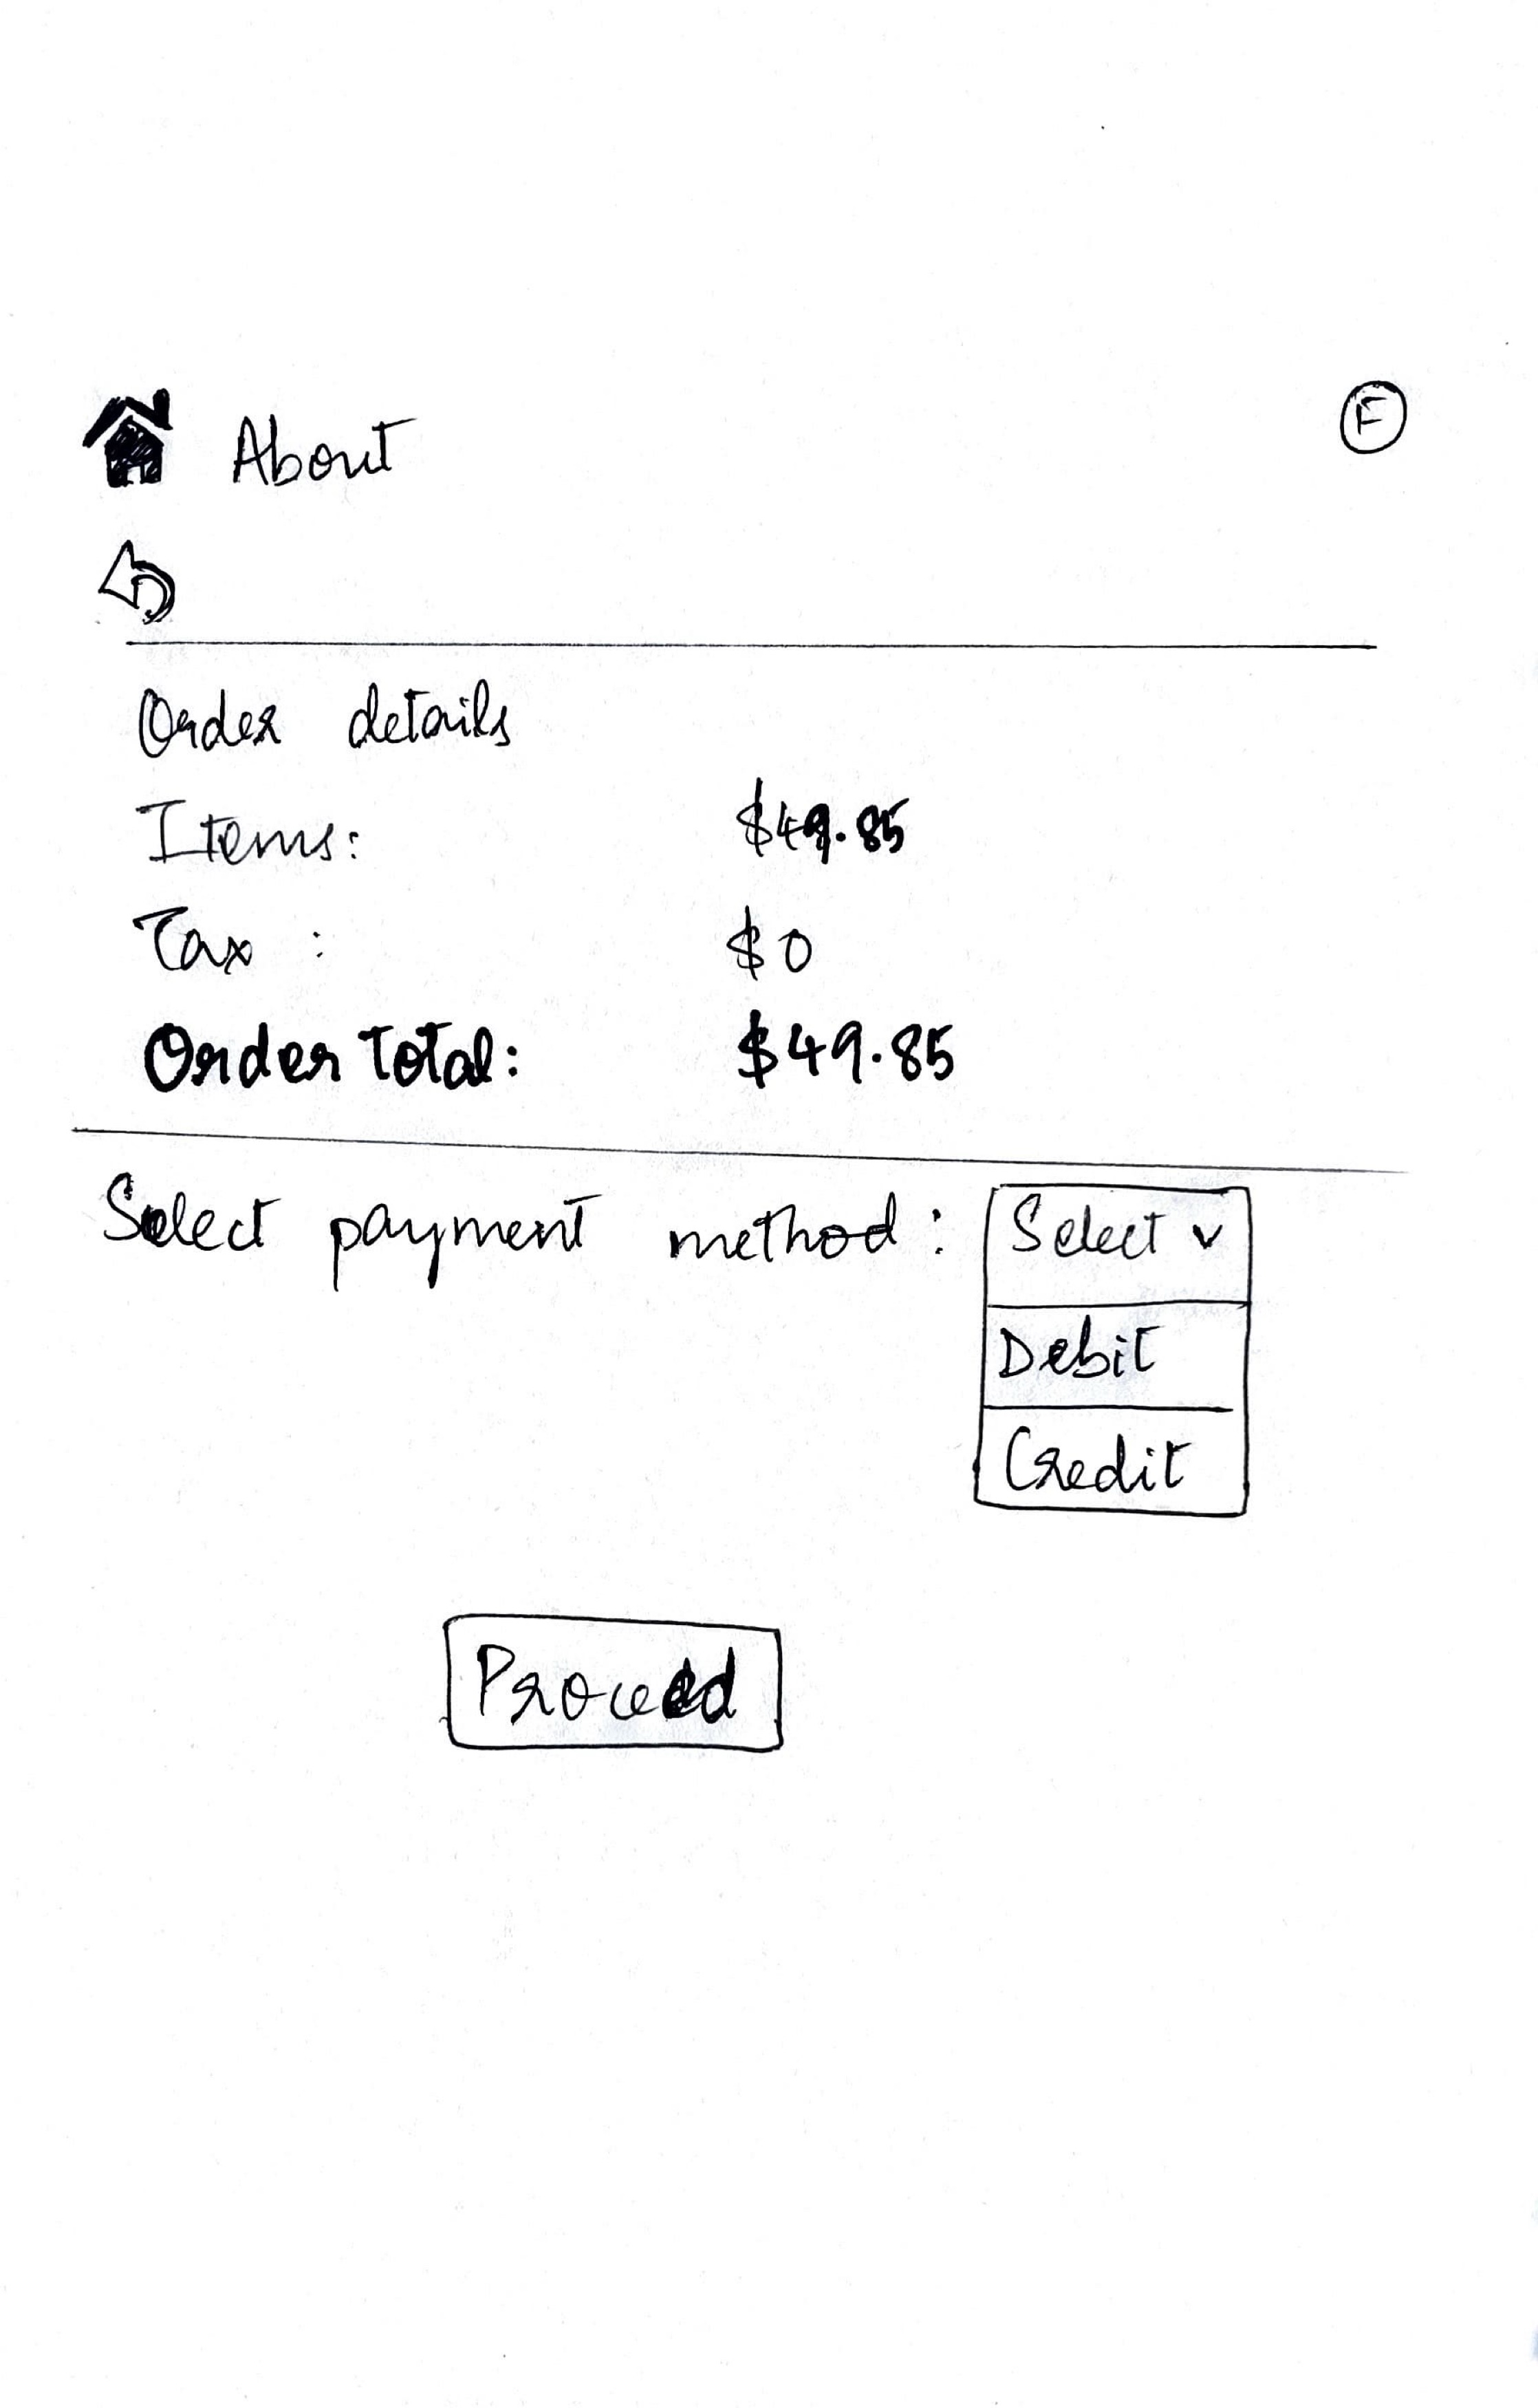 About
F
Order details
Items: $49.85
Tax : $0
Order Total: $49.85
Select payment method : Select v
Debit
Credit
Proceed